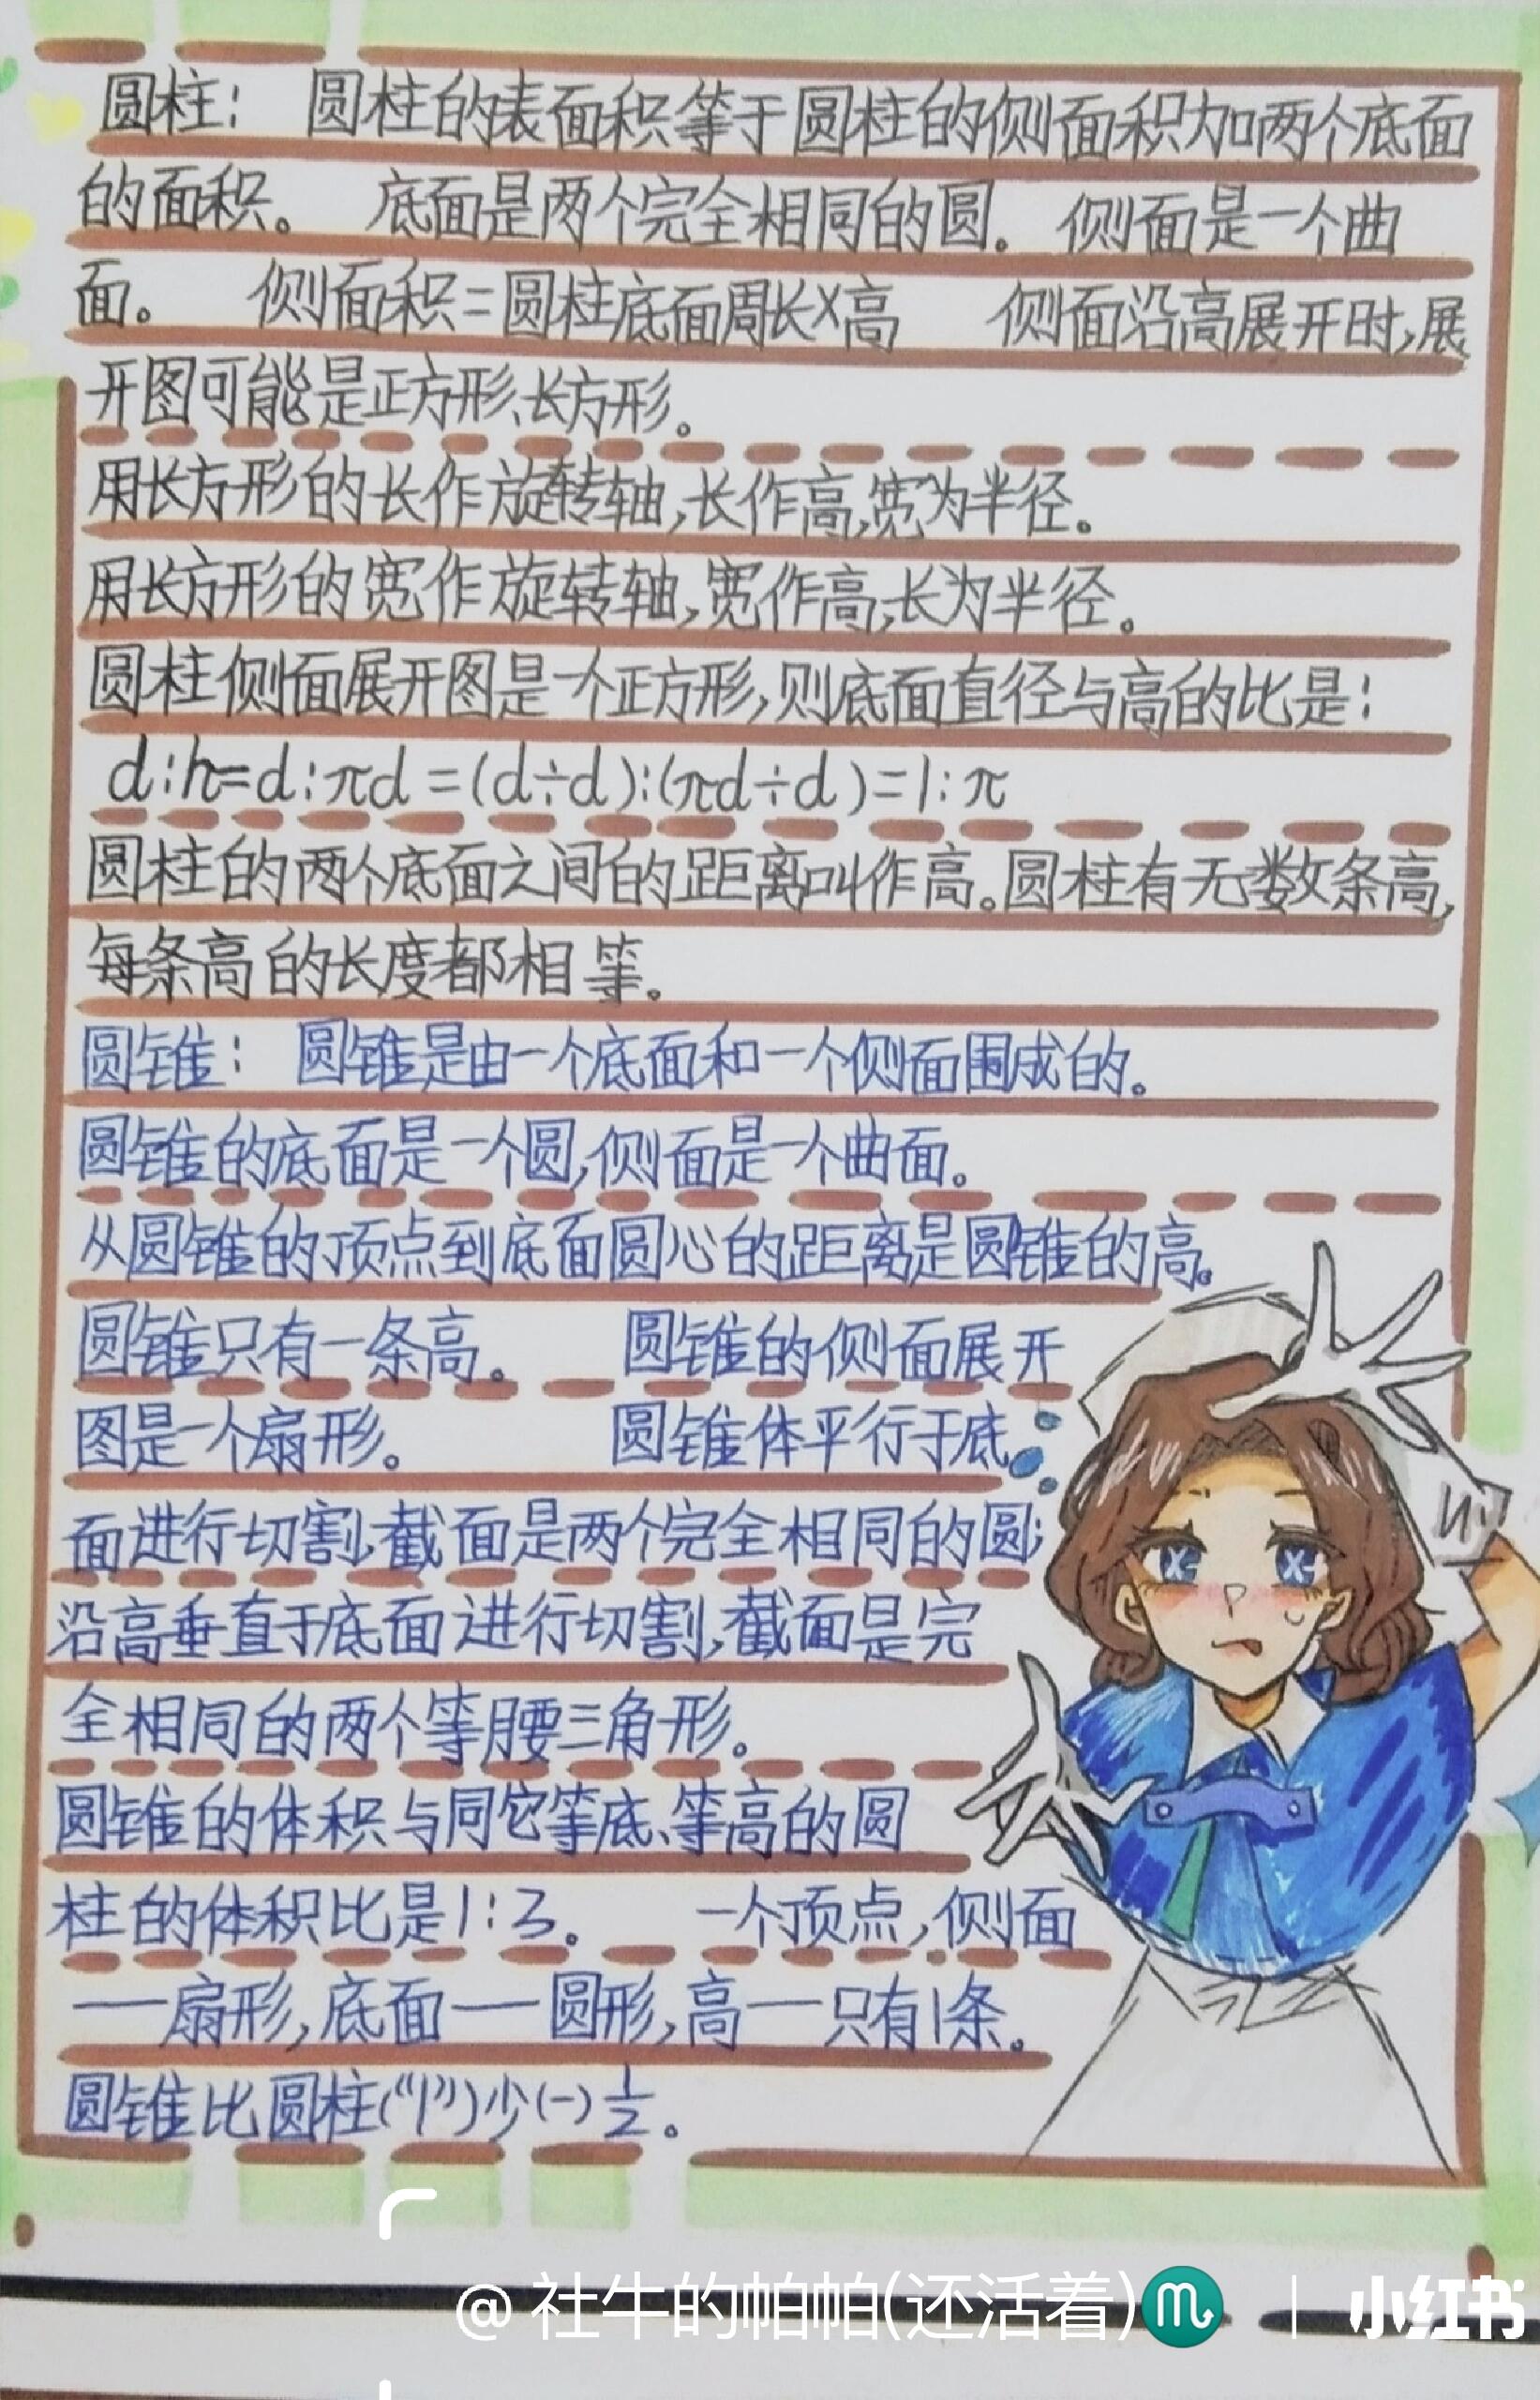 圆柱： 圆柱的表面积等于圆柱的侧面积加两个底面
的面积。 底面是两个完全相同的圆。 侧面是一个曲
面。 侧面积=圆柱底面周长×高 侧面沿高展开时,展
开图可能是正方形、长方形。
用长方形的长作旋转轴,长作高,宽为半径。
用长方形的宽作旋转轴,宽作高,长为半径。
圆柱侧面展开图是一个正方形,则底面直径与高的比是：
d:h=d:πd=(d÷d):(πd÷d)=1:π
圆柱的两个底面之间的距离叫作高。圆柱有无数条高,
每条高的长度都相等。
圆锥： 圆锥是由一个底面和一个侧面围成的。
圆锥的底面是一个圆,侧面是一个曲面。
从圆锥的顶点到底面圆心的距离是圆锥的高。
圆锥只有一条高。 圆锥的侧面展开
图是一个扇形。 圆锥体平行于底
面进行切割,截面是两个完全相同的圆;
沿高垂直于底面进行切割,截面是完
全相同的两个等腰三角形。
圆锥的体积与同它等底、等高的圆
柱的体积比是1:3。 一个顶点,侧面
——扇形,底面——圆形,高——只有1条。
圆锥比圆柱(“1”)少(-)1/2。
@社牛的帕帕(还活着)♏ | 小红书